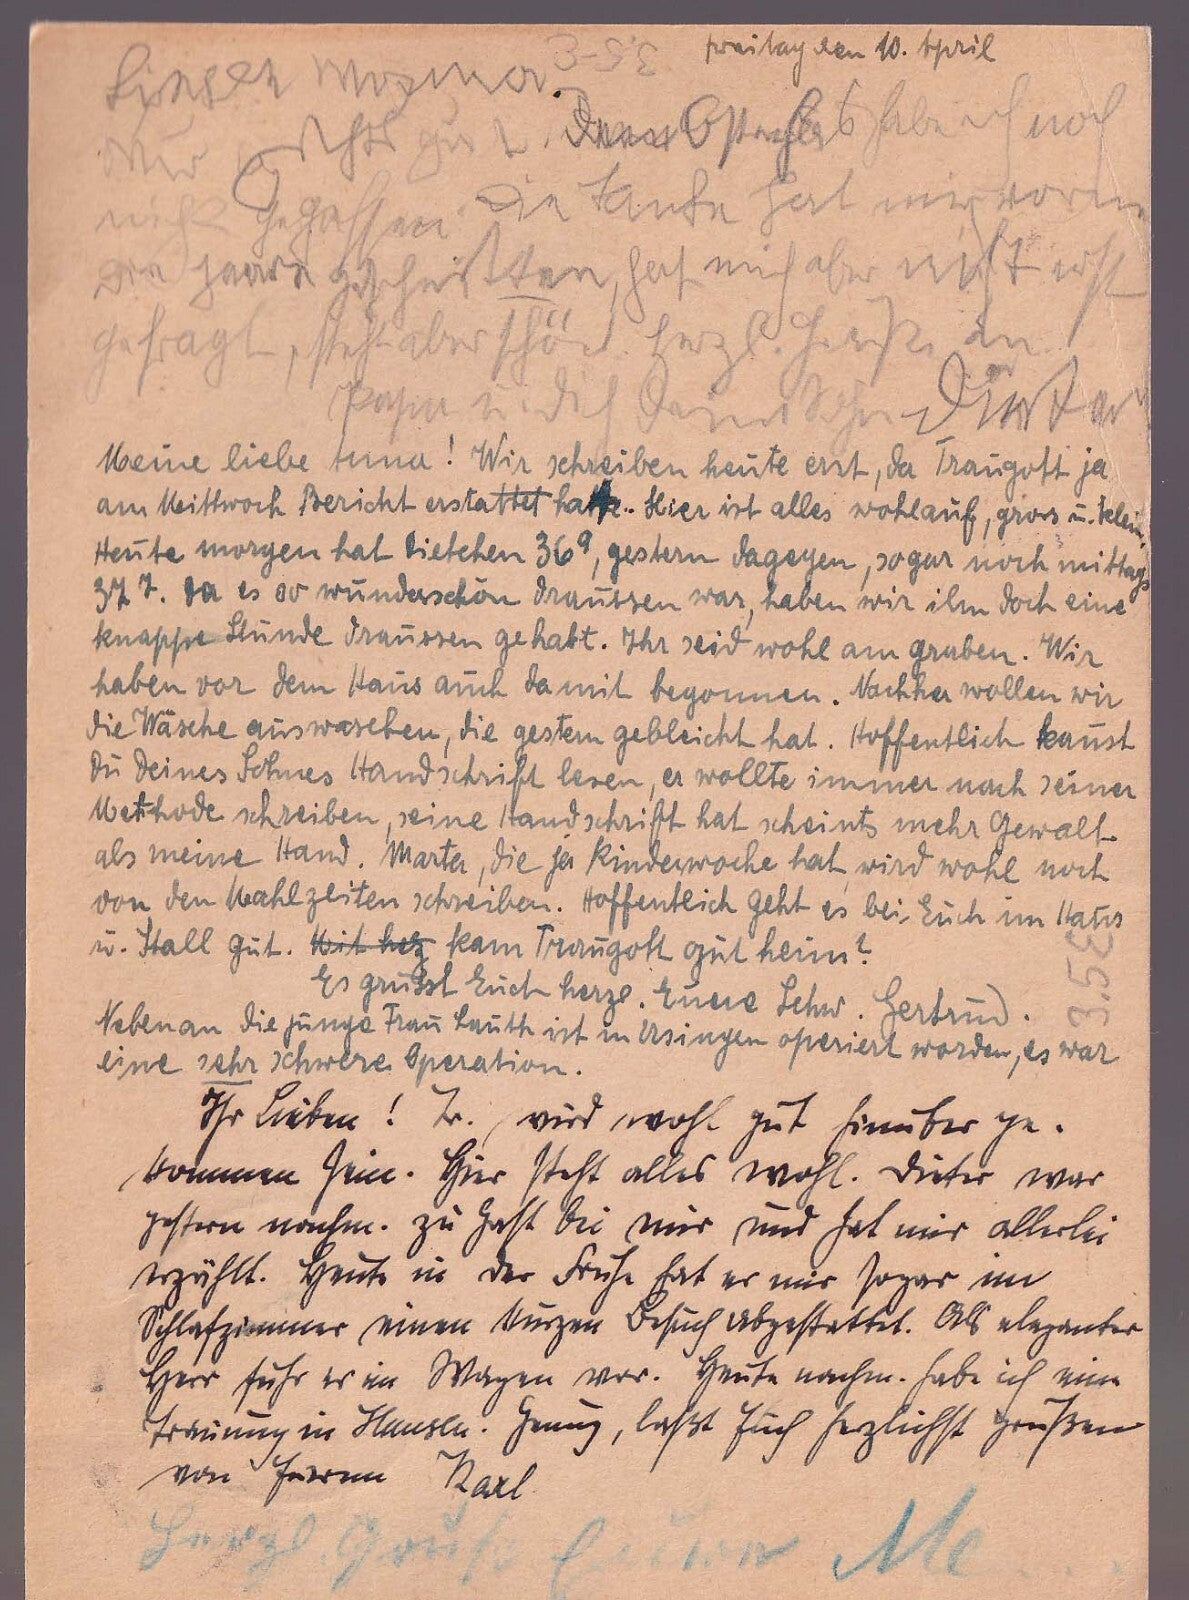 Freitag den 10. April
Mir geht's gut. Osterhas habe ich noch
nicht gegessen. Die Tante hat mir vorne
die Haare geschnitten, hat mich aber nicht erst
gefragt, steht aber schön. Herzl. Grüße an
Papa u. dich Deines Sohn Dieter
Meine liebe Anna! Wir schreiben heute erst, da Traugott ja
am Mittwoch Bericht erstattet hatte. Hier ist alles wohlauf, gross u. klein.
Heute morgen hat Dieterchen 36⁹, gestern dagegen, sogar noch mittags
37⁷. Da es so wunderschön draussen war, haben wir ihn doch eine
knappe Stunde draussen gehabt. Ihr seid wohl am graben. Wir
haben vor dem Haus auch damit begonnen. Nachher wollen wir
die Wäsche auswaschen, die gestern gebleicht hat. Hoffentlich kannst
du deines Sohnes Handschrift lesen, er wollte immer nach seiner
Methode schreiben, seine Handschrift hat scheints mehr Gewalt
als meine Hand. Marta, die ja Kinderwoche hat, wird wohl noch
von den Mahlzeiten schreiben. Hoffentlich geht es bei Euch im Haus
u. Stall gut. Mit kam Traugott gut heim?
Es grüsst Euch herzl. Euere Schw. Gertrud.
Nebenan die junge Frau Lauth ist in Usingen operiert worden, es war
eine sehr schwere Operation.
Ihr Lieben! Tr. wird wohl gut hinüber ge-
kommen sein. Hier steht alles wohl. Dieter war
gestern nachm. zu Gast bei mir und hat mir allerlei
erzählt. Heute in der Frühe hat er mir sogar im
Schlafzimmer einen kurzen Besuch abgestattet. Als eleganter
Herr fuhr er im Wagen vor. Heute nachm. habe ich eine
Trauung in Hausen. Genug, laßt Euch herzlichst grüßen
von Eurem Karl
Herzl. Gruß Eurer
3.5E